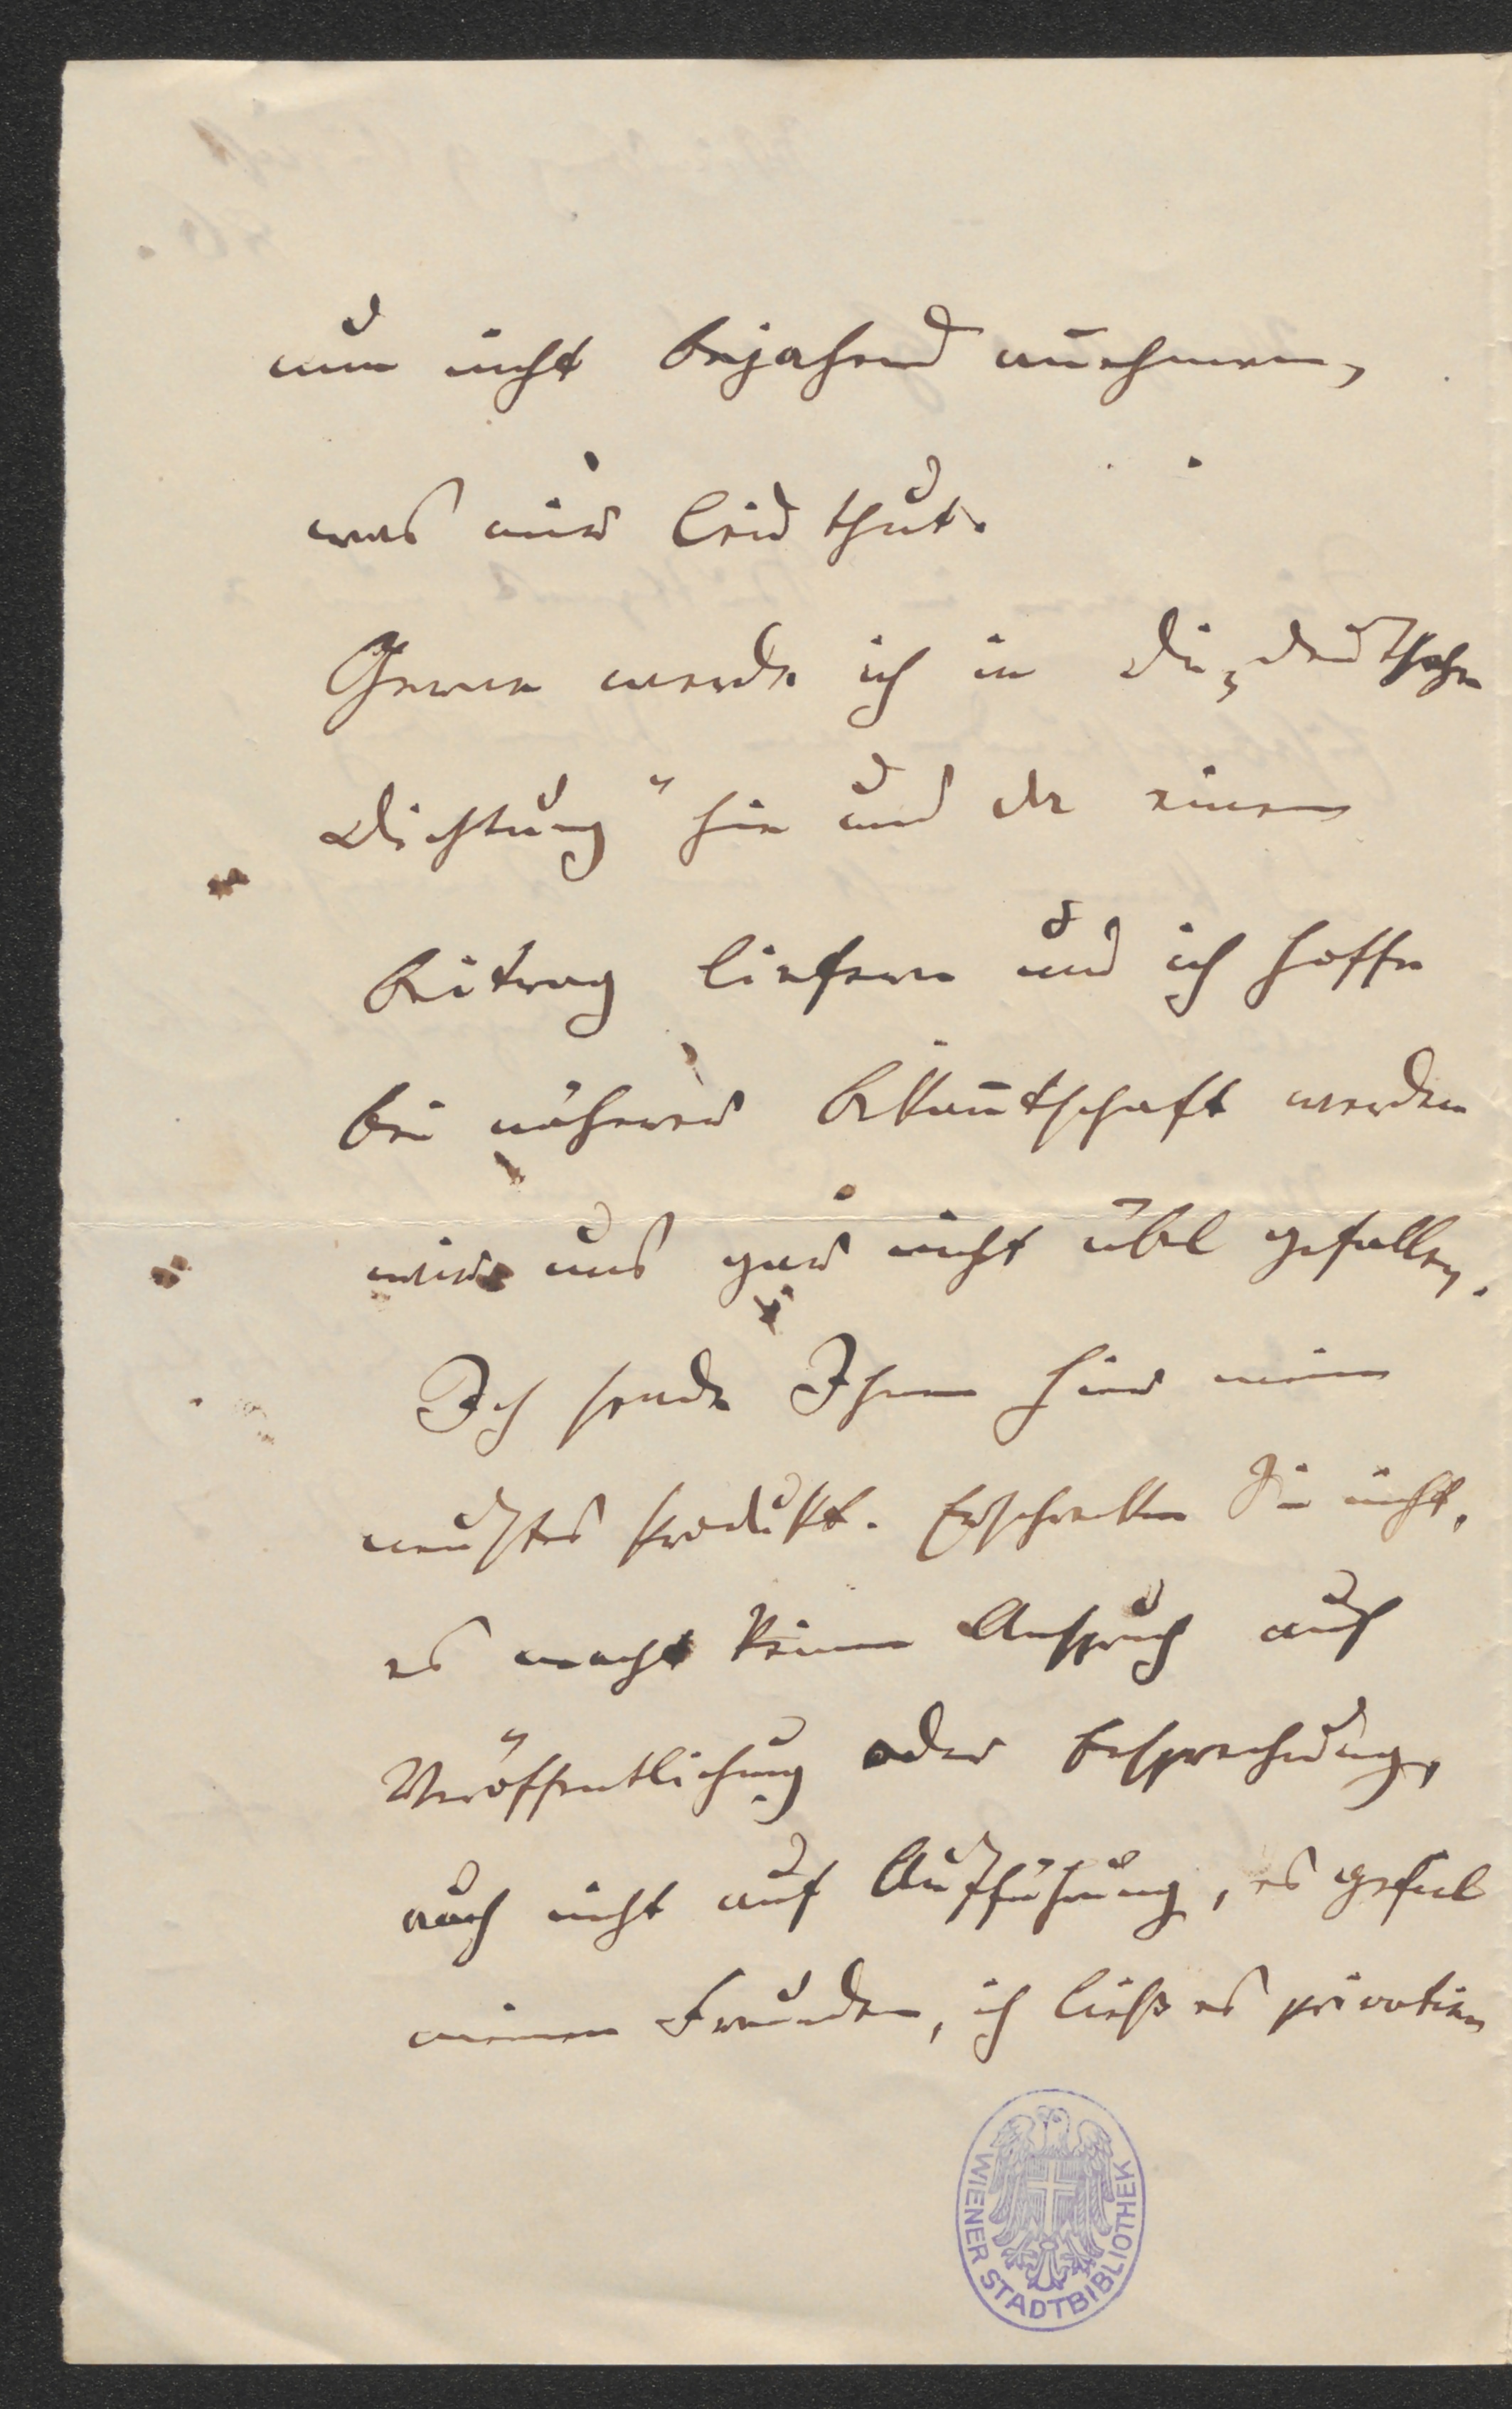 nun nicht bejahend annehmen,
was mir leid thut.
Gerne werde ich in die „deutsche
Dichtung“ hie und da einen
Beitrag liefern und ich hoffe
bei näherer Bekanntschaft werden
wir uns gar nicht übel gefallen.
Ich sende Ihnen hier mein
neustes Produkt. Erschrecken Sie nicht,
es macht keinen Anspruch auf
Veröffentlichung oder Besprechung,
auch nicht auf Aufführung, es gefiel
meinen Freunden, ich ließ es privatim
WIENER STADTBIBLIOTHEK